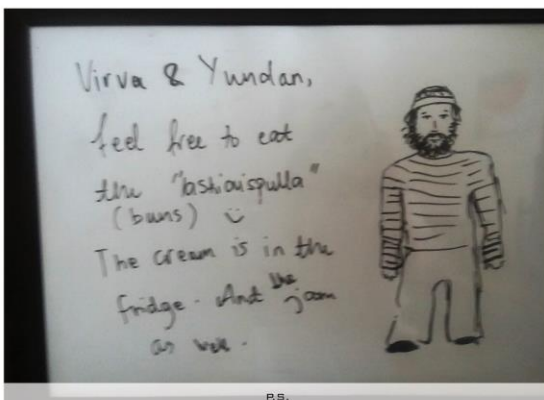 Virva & Yundan,
feel free to eat
the "laskiaispulla"
(buns) :)
The cream is in the
fridge. And the jam
as well.
P.S.